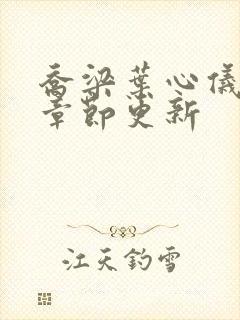 乔梁叶心仪
章节更新
江天钓雪